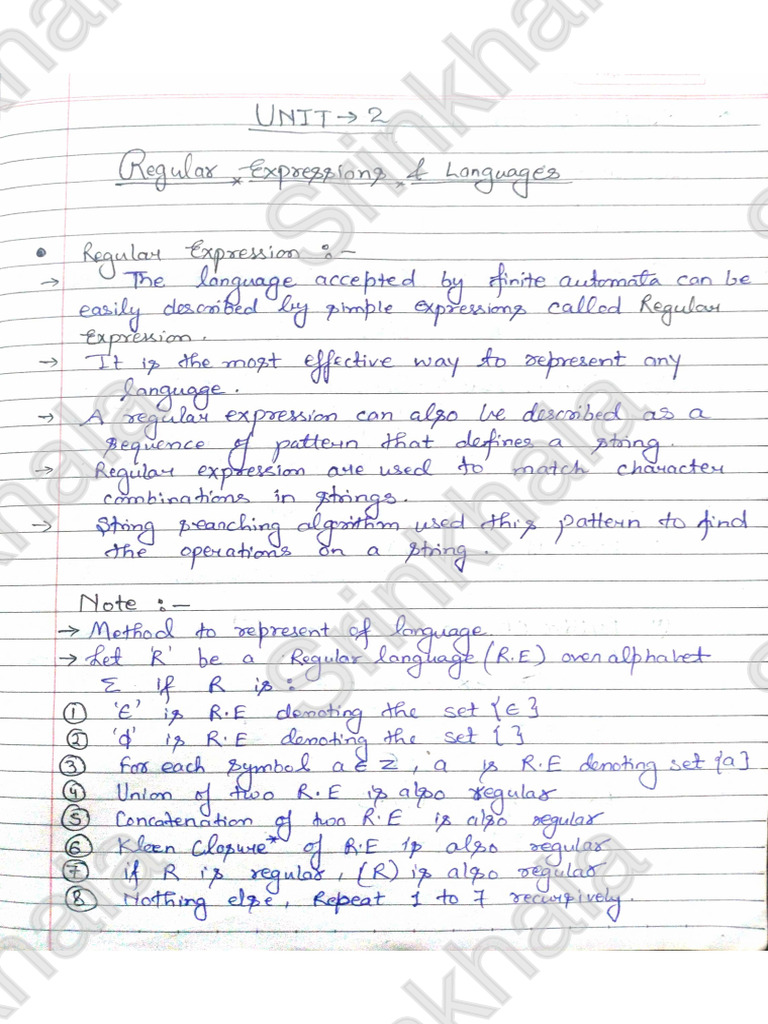 UNIT → 2
Regular Expressions & Languages
• Regular Expression :-
→ The language accepted by finite automata can be
easily described by simple expressions called Regular
Expression.
→ It is the most effective way to represent any
language.
→ A regular expression can also be described as a
sequence of pattern that defines a string.
→ Regular expression are used to match character
combinations in strings.
→ String searching algorithm used this pattern to find
the operations on a string.
Note :-
→ Method to represent of language
→ Let 'R' be a Regular language (R.E) over alphabet
Σ if R is :
① 'ϵ' is R.E denoting the set {ϵ}
② 'ϕ' is R.E denoting the set { }
③ For each symbol a ∈ Σ, 'a is R.E denoting set {a}
④ Union of two R.E is also regular
⑤ Concatenation of two R.E is also regular
⑥ Kleen Closure* of R.E is also regular
⑦ if R is regular, (R) is also regular
⑧ Nothing else, Repeat 1 to 7 recursively.
Srinkhala